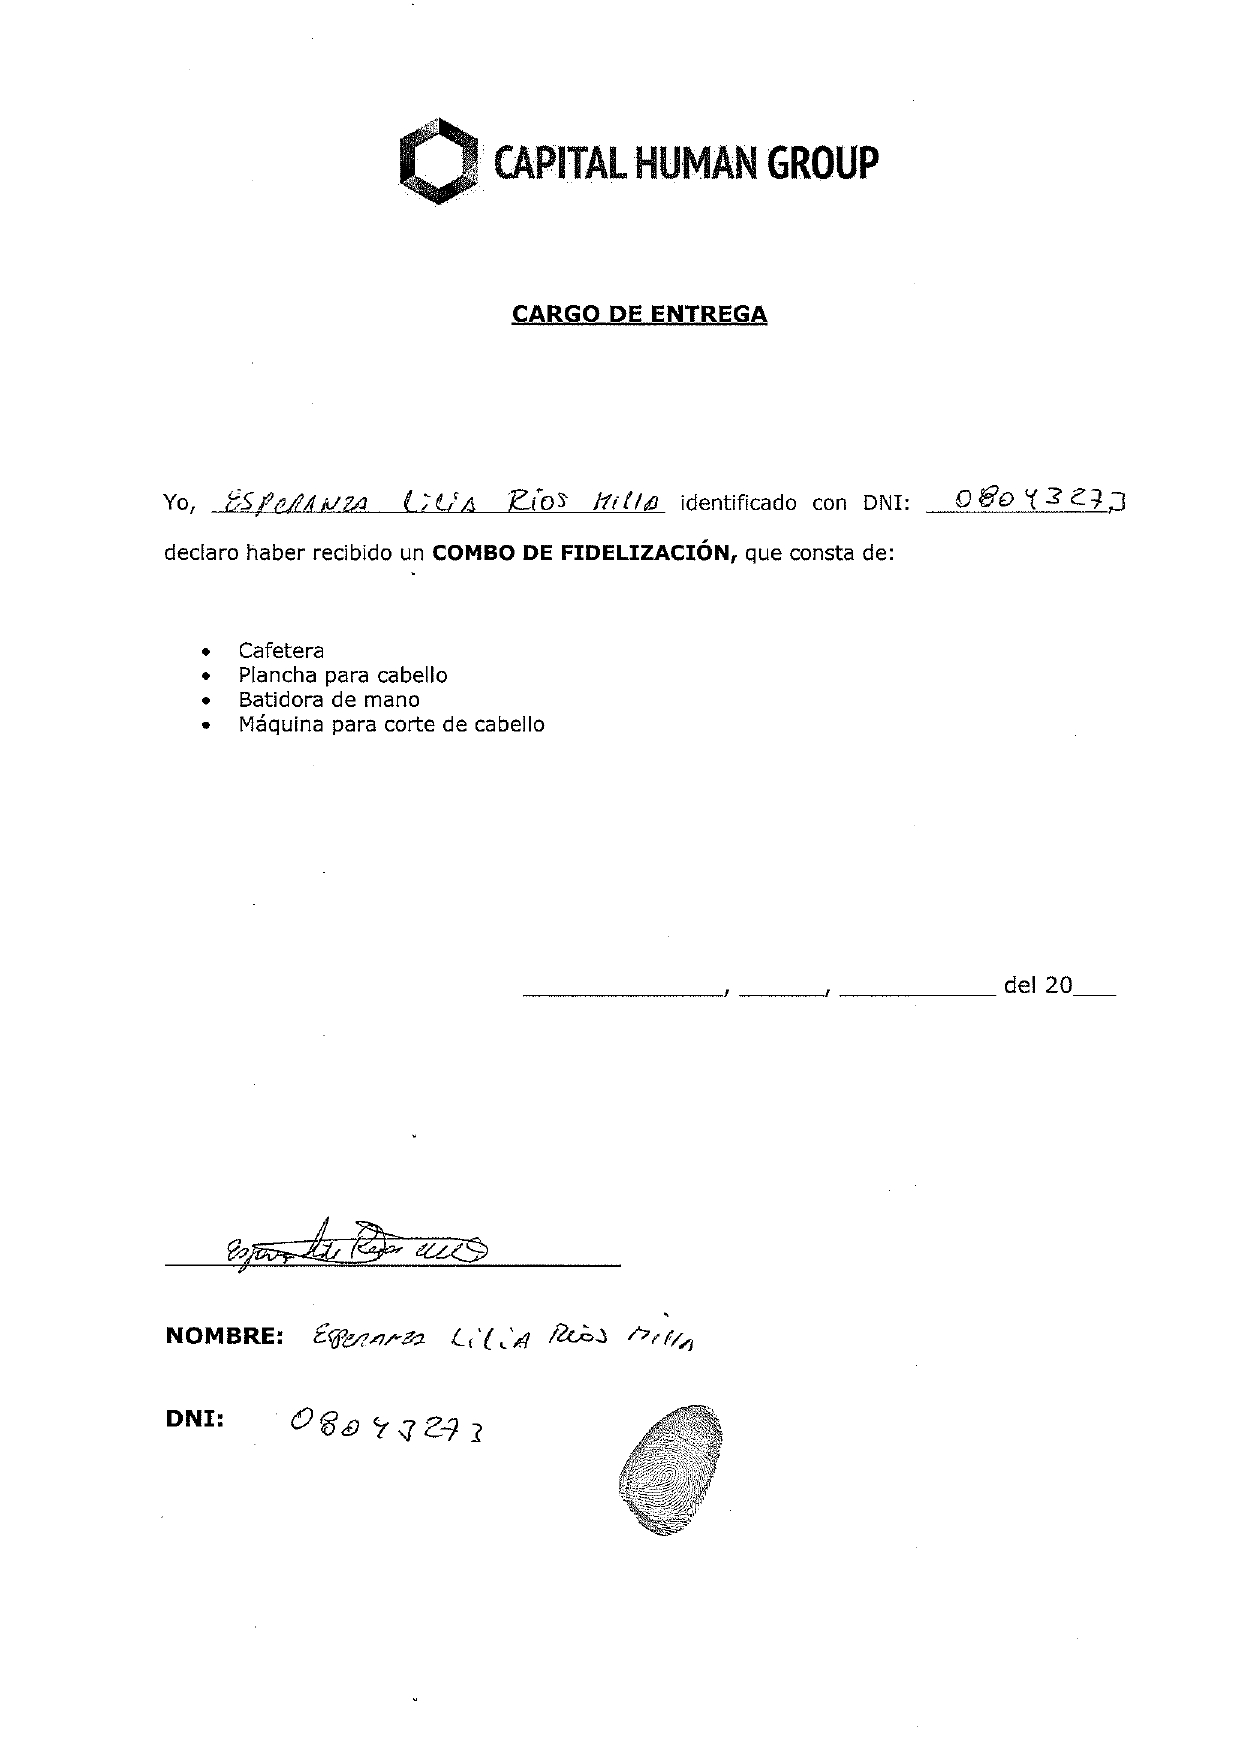 CAPITAL HUMAN GROUP
CARGO DE ENTREGA
Yo, ESPERANZA LILIA RÍOS MILLA identificado con DNI: 08043273
declaro haber recibido un COMBO DE FIDELIZACIÓN, que consta de:
• Cafetera
• Plancha para cabello
• Batidora de mano
• Máquina para corte de cabello
____________, _____, __________ del 20___
NOMBRE: Esperanza Lilia Ríos Milla
DNI: 08043273